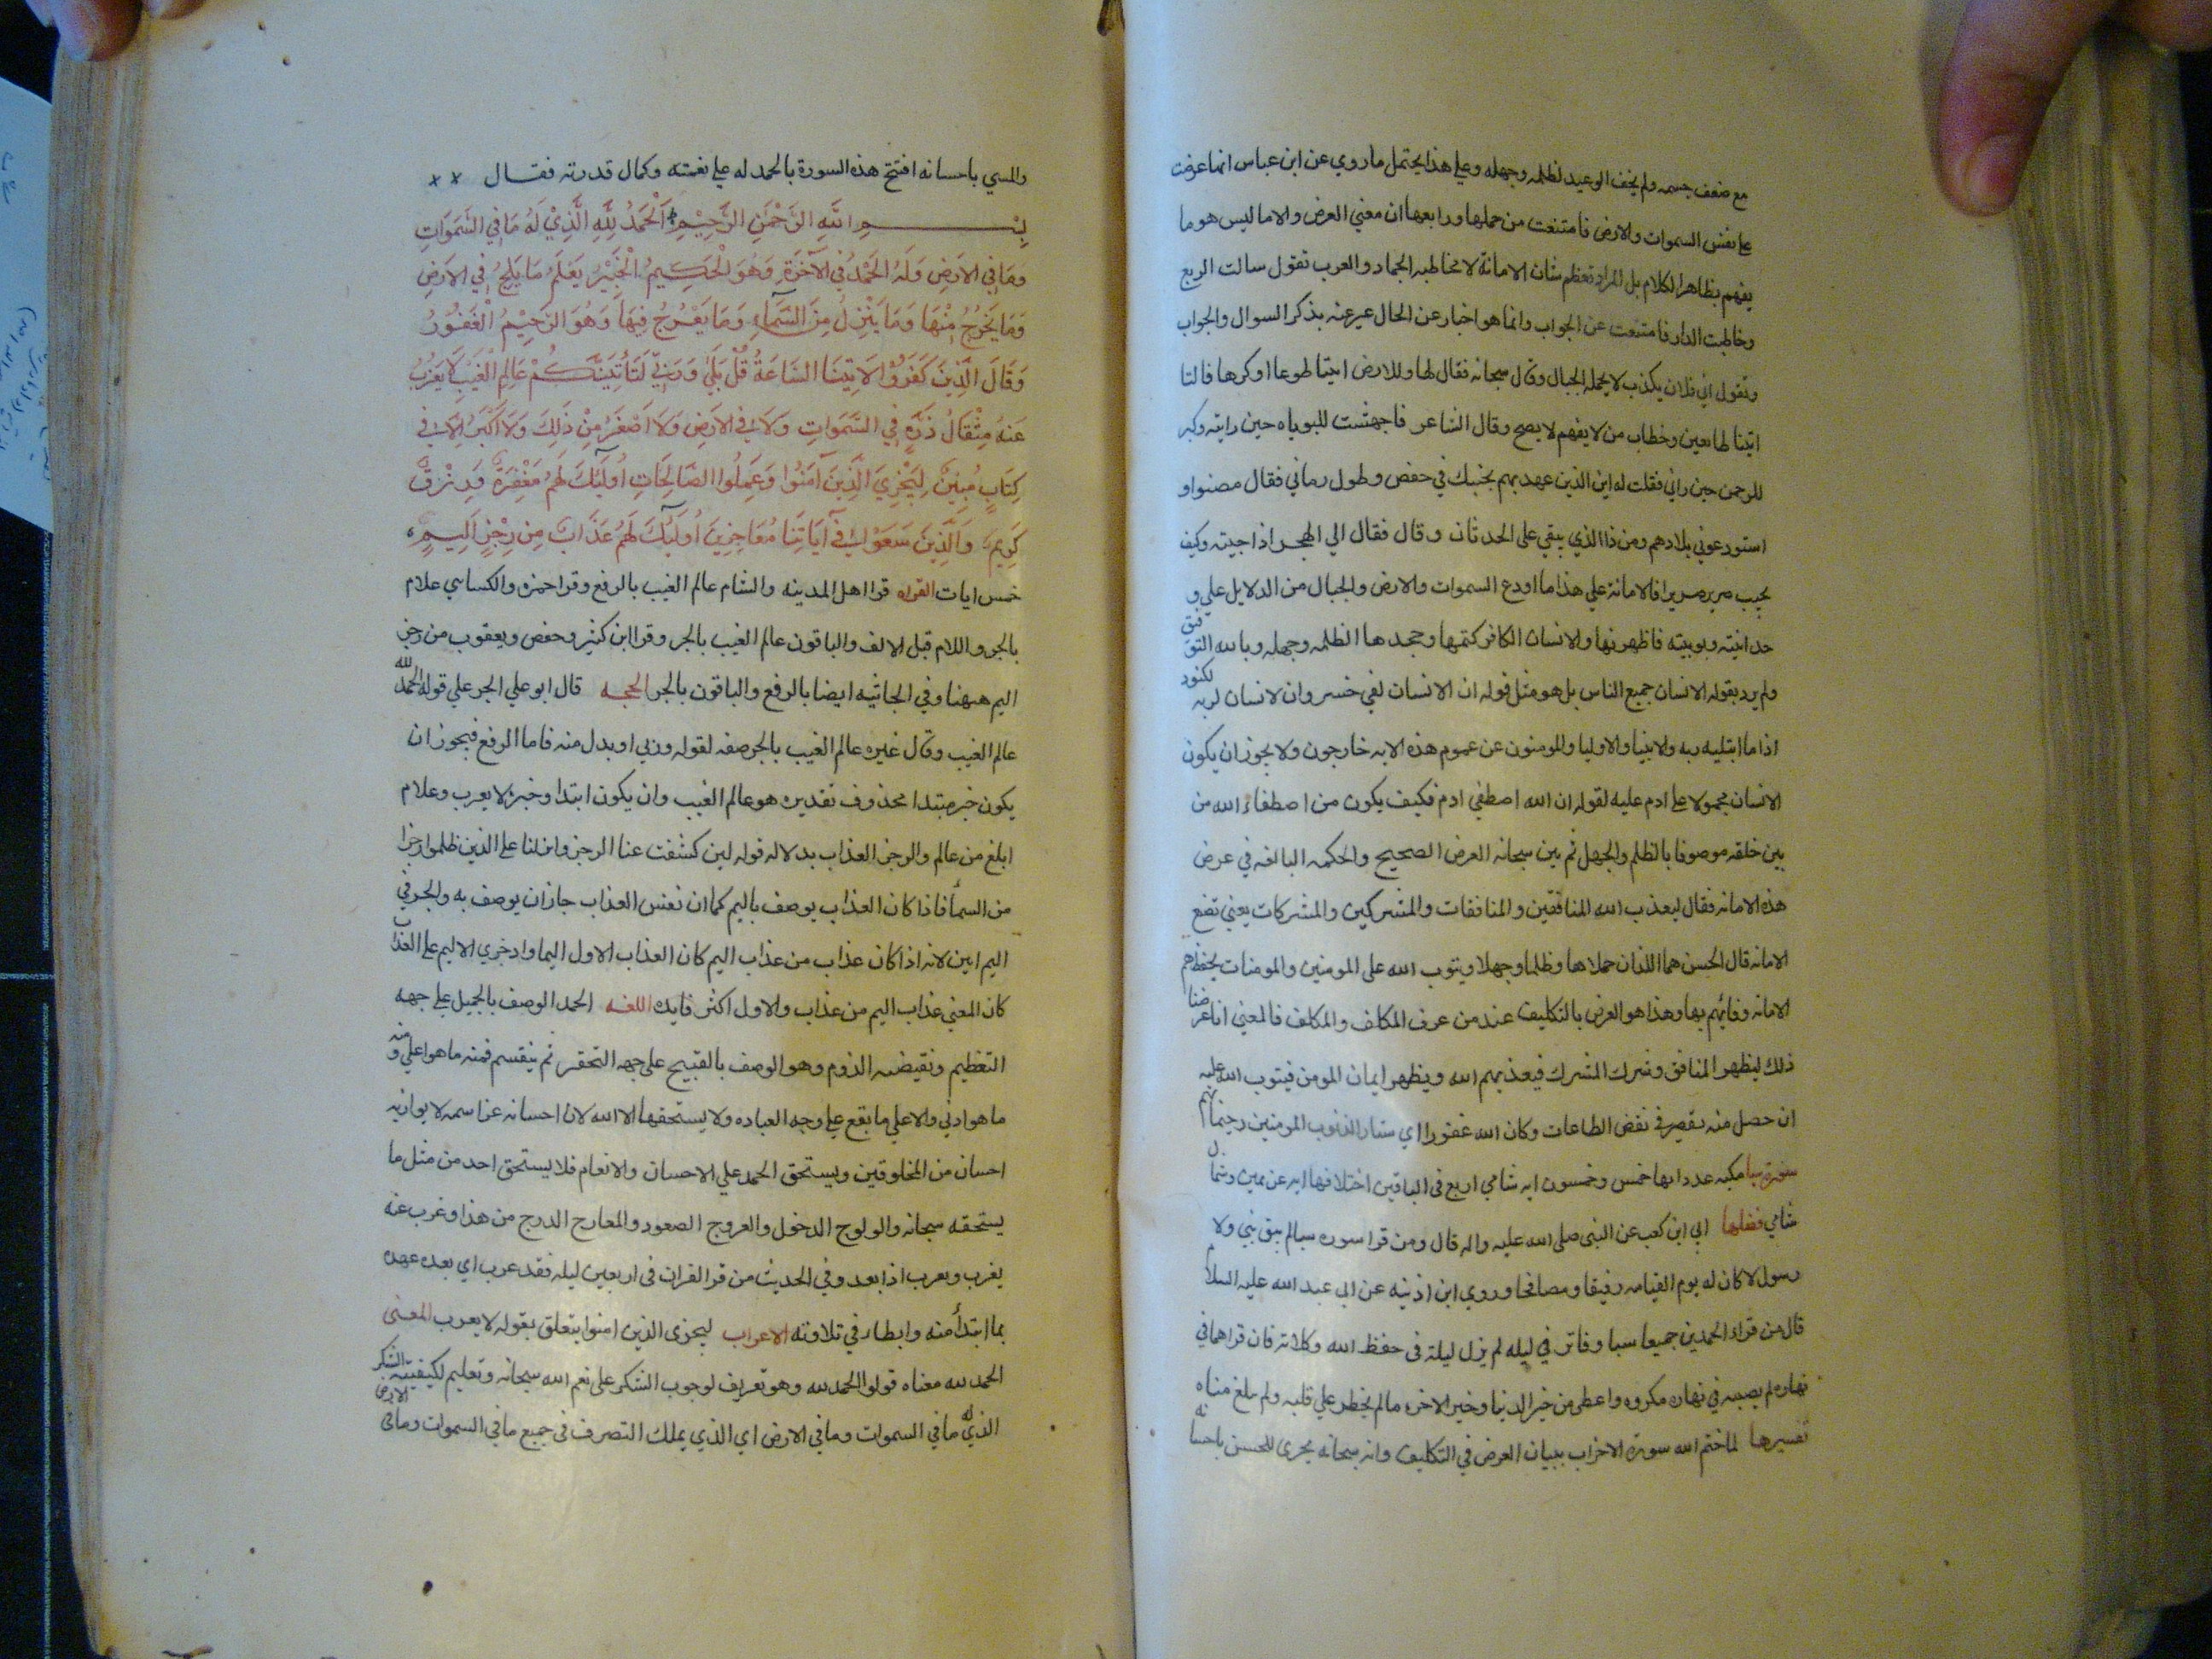 مع ضعف جسمه ولم يخف الوعيد لظلمه وجهله وعلي هذا يحتمل ما روي عن ابن عباس انها عرضت
علي نفس السموات والارض فامتنعت من حملها ورابعها ان معني العرض والابا ليس هو ما
يفهم بظاهر الكلام بل المراد تعظيم شان الامانة لا مخاطبه الجماد والعرب تقول سالت الربع
وخاطبت الدار فامتنعت عن الجواب وانما هو اخبار عن الحال عبر عنه بذكر السوال والجواب
وتقول اتي فلان بكذب لا يحمله الجبال وقال سبحانه فقال لها وللارض ائتيا طوعا او كرها قالتا
اتينا طايعين وخطاب من لا يفهم لا يصح وقال الشاعر فاجهشت للبوباه حين رايته وكبر
للرحمن حين راني فقلت له اين الذين عهدتهم بجنبك في خفض وطول زماني فقال مضوا و
استودعوني بلادهم ومن ذا الذي يبقي علي الحدثان وقال فقال الي الهجر اذا جيته وكيف
يجيب ضرير ضريرا فالامانة علي هذا ما اودع السموات والارض والجبال من الدلايل علي و
حدانيته وربوبيته فاظهرنها والانسان الكافر كتمها وجحدها لظلمه وجهله وبالله التوفيق
ولم يرد بقوله الانسان جميع الناس بل هو مثل قوله ان الانسان لفي خسر وان الانسان لربه لكنود
اذا ما ابتليه ربه والانبيا والاوليا والمومنون عن عموم هذه الايه خارجون ولا يجوز ان يكون
الانسان محمولا علي ادم عليه لقوله ان الله اصطفي ادم فكيف يكون من اصطفاء الله من
بين خلقه موصوفا بالظلم والجهل ثم بين سبحانه الغرض الصحيح والحكمه البالغه في عرض
هذه الامانه فقال ليعذب الله المنافقين والمنافقات والمشركين والمشركات يعني تضع
الامانه قال الحسن هما اللذان حملاها وظلما وجهلا ويتوب الله علي المومنين والمومنات بحفظهم
الامانه وفائهم بها وهذا هو الغرض بالتكليف عند من عرف المكلف والمكلف فالمعني انا عرضنا
ذلك ليظهر المنافق وشرك المشرك فيعذبهم الله ويظهر ايمان المومن فيتوب الله عليه
ان حصل منه تقصير في نقض الطاعات وكان الله غفورا اي ستار الذنوب المومنين رحيما بهم
سورة سبا مكيه عدد ايها خمس وخمسون ايه شامي اربع في الباقين اختلافها ايه عن يمين وشمال
شامي فضلها ابي ابن كعب عن النبي صلي الله عليه واله قال ومن قرا سوره سبا لم يبق نبي ولا
رسول لا كان له يوم القيامه رفيقا ومصافحا وروي ابن اذينه عن ابي عبد الله عليه السلام
قال من قراء الحمدين جميعا سبا وفاتر في ليله لم يزل ليلة في حفظ الله وكلاته فان قراهما في
نهاره لم يصبه في نهاره مكروه واعطي من خير الدنيا وخير الاخره ما لم يخطر علي قلبه ولم يبلغ مناه
تفسيرها لما ختم الله سورة الاحزاب ببيان الغرض في التكليف وانه سبحانه يجزي المحسن باحسانه
والمسي باحسانه افتتح هذه السورة بالحمد له علي نعمته وكمال قدرته فقال
بِسْمِ اللّهِ الرَّحْمَنِ الرَّحِيْمِ اَلْحَمَدُ لِلَّهِ الَّذِيْ لَهُ مَا فِي السَّمَوَاتِ
وَمَا فِي الاَرَضِ وَلَهُ الْحَمْدُ فِي الآخَرَةِ وَهُوَ الْحَكِيمُ الْخَبِيْرُ يَعْلَمُ مَا يَلِجُ فِي الاَرَضِ
وَمَا يَخْرُجُ مِنْهَا وَمَا يَنْزِلُ مِنَ السَّمَآءِ وَمَا يَعْرُجُ فِيهَا وَهُوَ الرَّحِيْمُ الْغَفُوْرُ
وَقَالَ الَّذِينَ كَفَرَوُا لاَ تِيتَنَا السَّاعَةُ قُلْ بَلَي وَرَبِيّ لَتَأْتِيَنَّكُمْ عَالِمِ الْغَيْبِ لاَ يَعْزُبُ
عَنْهُ مِثْقَالُ ذَرَّةٍ فِي السَّمَوَاتِ وَلاَ فِي الاَرَضِ وَلاَ اَصْغَرُ مِنْ ذَلِكَ وَلاَ اَكْبَرُ اِلاَّ فِي
كِتَابٍ مُبِينٍ لِيَجْزِيَ الَّذِينَ آمَنُوا وَعَمِلُوا الصَّالِحَاتِ اُولَئِكَ لَهُمْ مَغْفِرَةٌ وَرِزْقٌ
كَرِيمٌ وَالَّذِينَ سَعَوْا فِي آيَاتِنَا مُعَاجِزِينَ اُولَئِكَ لَهُمْ عَذَابٌ مِنْ رِجْزٍ اَلِيمٍ
خمس ايات القراه قرا اهل المدينه والشام عالم الغيب بالرفع وقرا حمزه والكساسي علام
بالجر واللام قبل الالف والباقون عالم الغيب بالجر وقرا ابن كثير وحفص ويعقوب من رجز
اليم ههنا وفي الجاثيه ايضا بالرفع والباقون بالجر الحجه قال ابو علي الجر علي قوله الحمد لله
عالم الغيب وقال غيره عالم الغيب بالجر صفه لقوله وربي او بدل منه فاما الرفع فيجوز ان
يكون خبر مبتدا محذوف تقديره هو عالم الغيب وان يكون ابتدا وخبره لا يعزب وعلام
ابلغ من عالم والرجز العذاب بدلاله قوله لين كشفت عنا الرجز وانزلنا علي الذين ظلموا رجزا
من السمأ فاذا كان العذاب يوصف باليم كما ان نفس العذاب جاز ان يوصف به والجر في
اليم ابين لانه اذا كان عذاب من عذاب اليم كان العذاب الاول اليما واذ جري الاليم علي العذاب
كان المعني عذاب اليم من عذاب والاول اكثر فايده اللغه الحمد الوصف بالجميل علي جهه
التعظيم ونقيضه الذم وهو الوصف بالقبيح علي جهه التحقير ثم ينقسم فمنه ما هو اعلي ومنه
ما هو ادني والاعلي ما يقع علي وجه العباده ولا يستحقها الا الله لان احسانه عز اسمه لا يوازيه
احسان من المخلوقين ويستحق الحمد علي الاحسان والانعام فلا يستحق احد من مثل ما
يستحقه سبحانه والولوج الدخول والعروج الصعود والمعارج الدرج من هذا وعزب عنه
يعزب ويعزب اذا بعد وفي الحديث من قرا القران في اربعين ليله فقد عزب اي بعد عهده
بما ابتدأ منه وابطا في تلاوته الاعراب ليجزي الذين امنوا يتعلق بقوله لا يعزب المعني
الحمد لله معناه قولوا الحمد لله وهو تعريف لوجوب الشكر علي نعم الله سبحانه وتعليم لكيفيته الشكر
الذي له ما في السموات وما في الارض اي الذي يملك التصرف في جميع ما في السموات وما في الارض